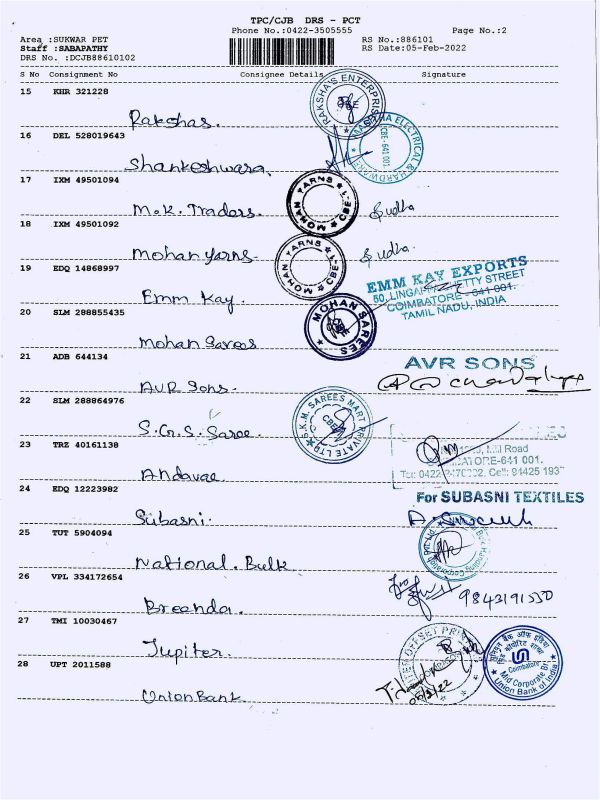 TPC/CJB DRS - PCT
Phone No.:0422-3505555
Page No.:2
Area :SUKWAR PET
RS No.:886101
Staff :SABAPATHY
RS Date:05-Feb-2022
DRS No. :DCJB88610102
S No Consignment No Consignee Details Signature
15 KHR 321228
RAKSHA'S ENTERPRISE
Rakshas.
16 DEL 528019643
ELECTRICAL & HARDWARE
CBE - 641 001.
Shankeshwara.
17 IXM 49501094
MOHAN YARNS CBE-1
M.K. Traders. Sudha
18 IXM 49501092
MOHAN YARNS CBE-1
Mohan Yarns. Sudha.
19 EDQ 14868997
EMM KAY EXPORTS
STREET
COIMBATORE - 641 001.
TAMIL NADU, INDIA
Emm Kay.
20 SLM 288855435
MOHAN SAREES
Mohan Sarees
21 ADB 644134
AVR SONS
AVR Sons.
22 SLM 288864976
S.K.M. SAREES MART PRIVATE LTD
CBE
S.G.S. Saree.
23 TRZ 40161138
Road
641 001.
Andavar
24 EDQ 12223982
For SUBASNI TEXTILES
Subasni.
25 TUT 5904094
National. Bulk
26 VPL 334172654
Breenda.
27 TMI 10030467
OFFSET
Jupiter.
28 UPT 2011588
यूनियन बैंक ऑफ इंडिया
Coimbatore
Mid Corporate Br.
Union Bank of India
Union Bank